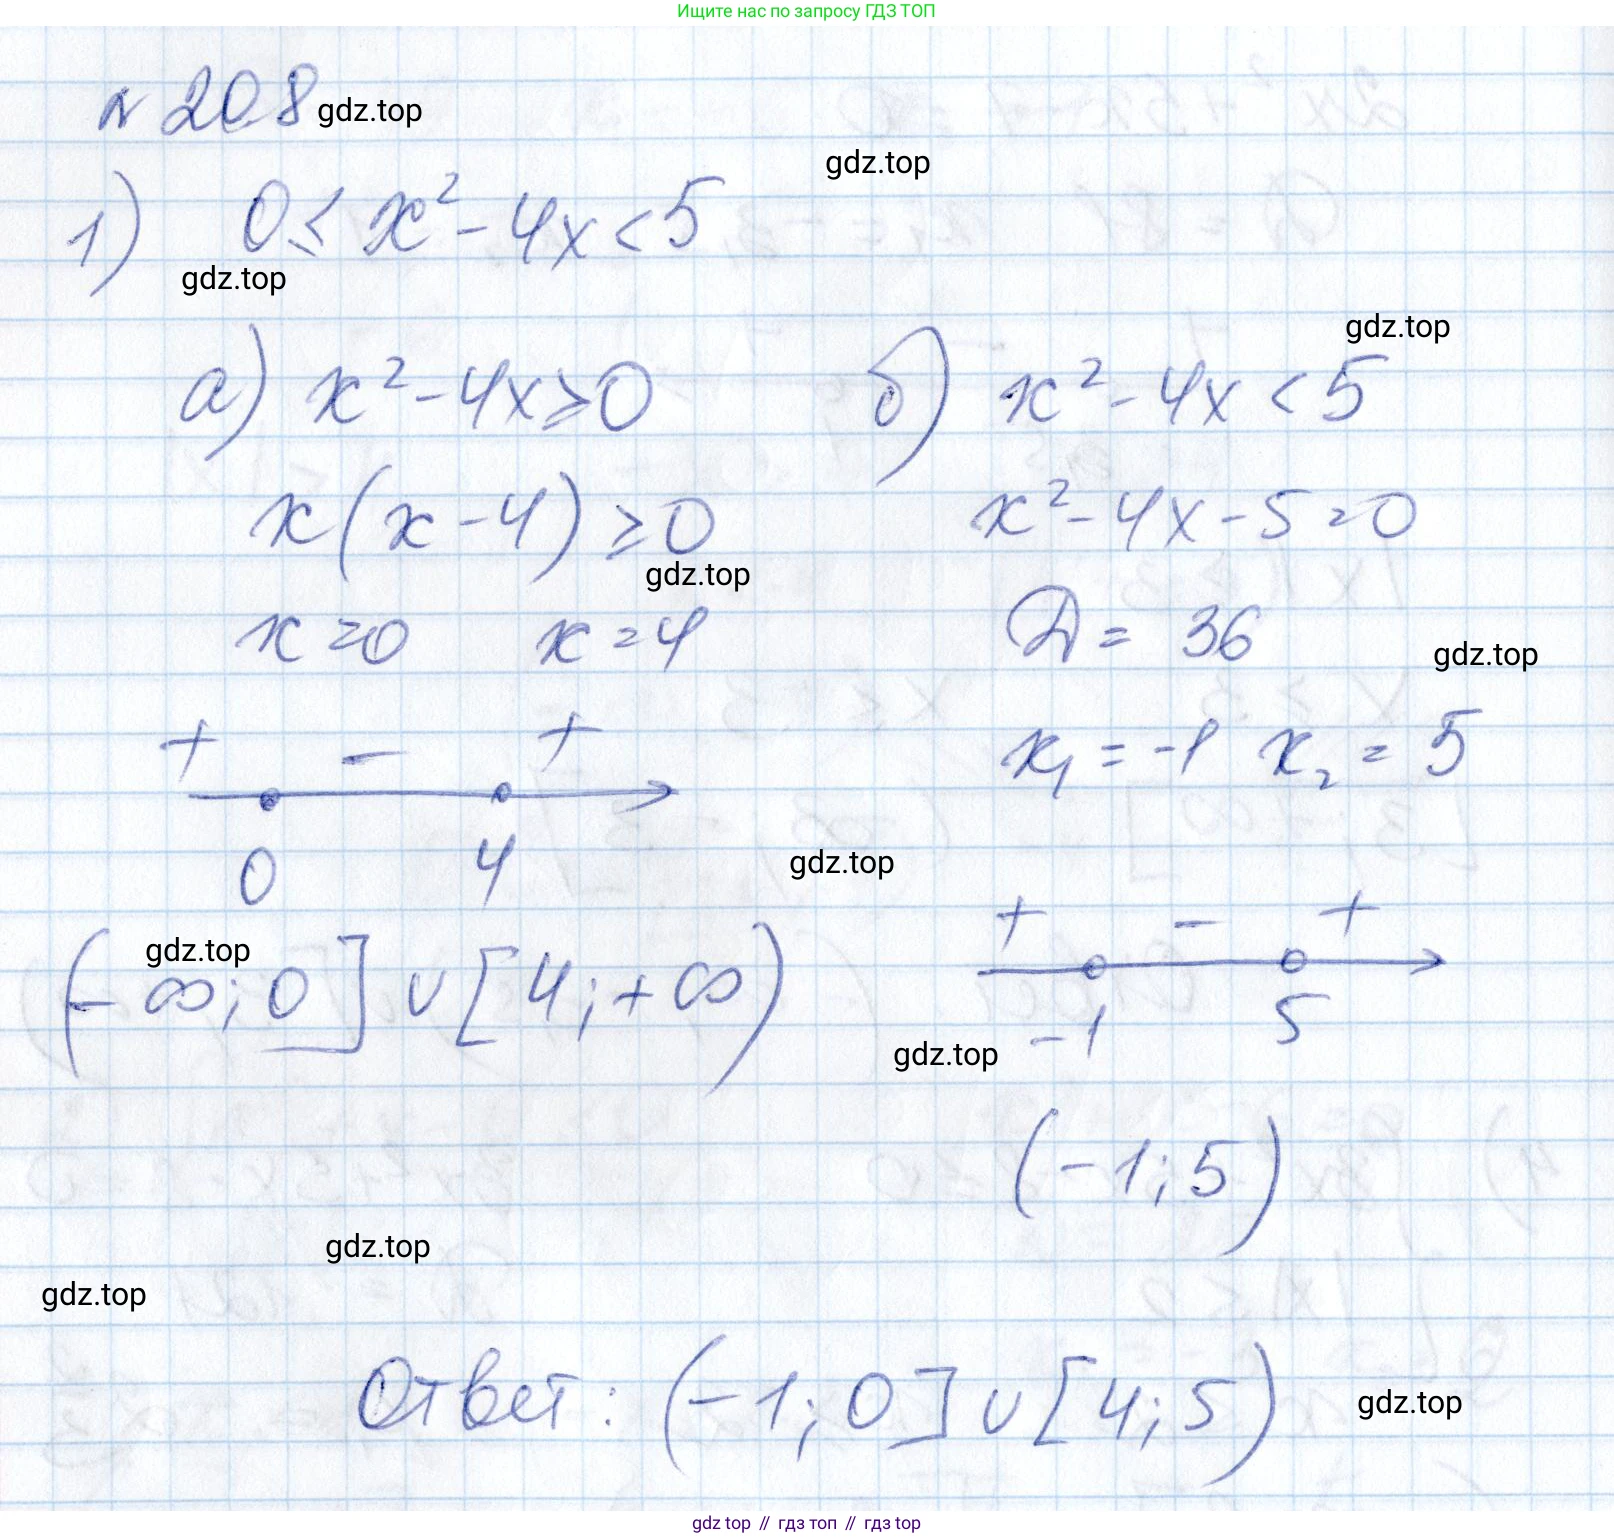 Ищите нас по запросу ГДЗ ТОП
№ 20.8 gdz.top
gdz.top
1) 0 ≤ x² - 4x < 5
gdz.top
gdz.top
а) x² - 4x ≥ 0
x(x - 4) ≥ 0
gdz.top
x = 0 x = 4
+ - +
0 4
gdz.top
(-∞; 0] ∪ [4; +∞)
б) x² - 4x < 5
x² - 4x - 5 = 0
D = 36
gdz.top
x₁ = -1 x₂ = 5
gdz.top
+ - +
-1 5
gdz.top
(-1; 5)
gdz.top
gdz.top
Ответ: (-1; 0] ∪ [4; 5)
gdz.top
gdz top // гдз топ // гдз top